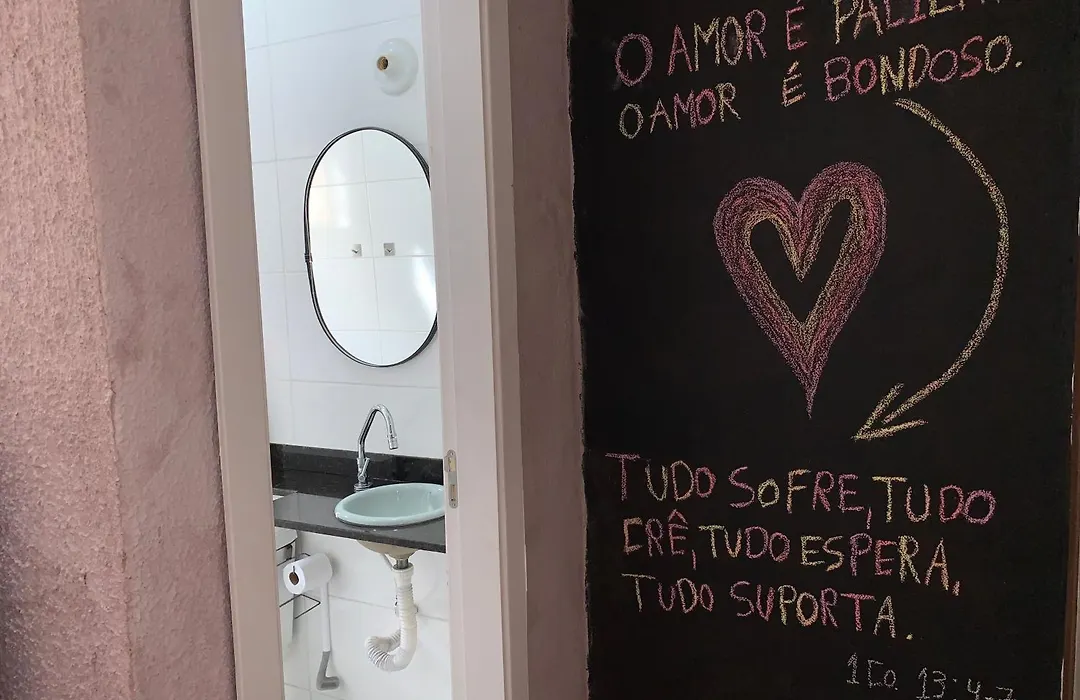 O AMOR É
O AMOR É BONDOSO.
TUDO SOFRE, TUDO
CRÊ, TUDO ESPERA,
TUDO SUPORTA.
1 CO. 13:4-7